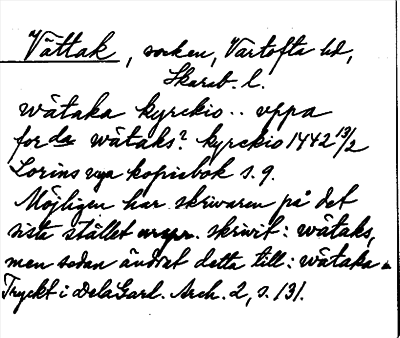 Vättak, socken, Vartofta hd,
Skarab. l.
wätaka kyrckio .. vppa
for da wätaks? kyrckio 1442 13/2
Lorins nya kopiebok s. 9.
Möjligen har skrivaren på det
sista stället urspr. skrivit: wätaks,
men sedan ändrat detta till: wätaka.
Tryckt i DelaGard. Arch. 2, s. 131.